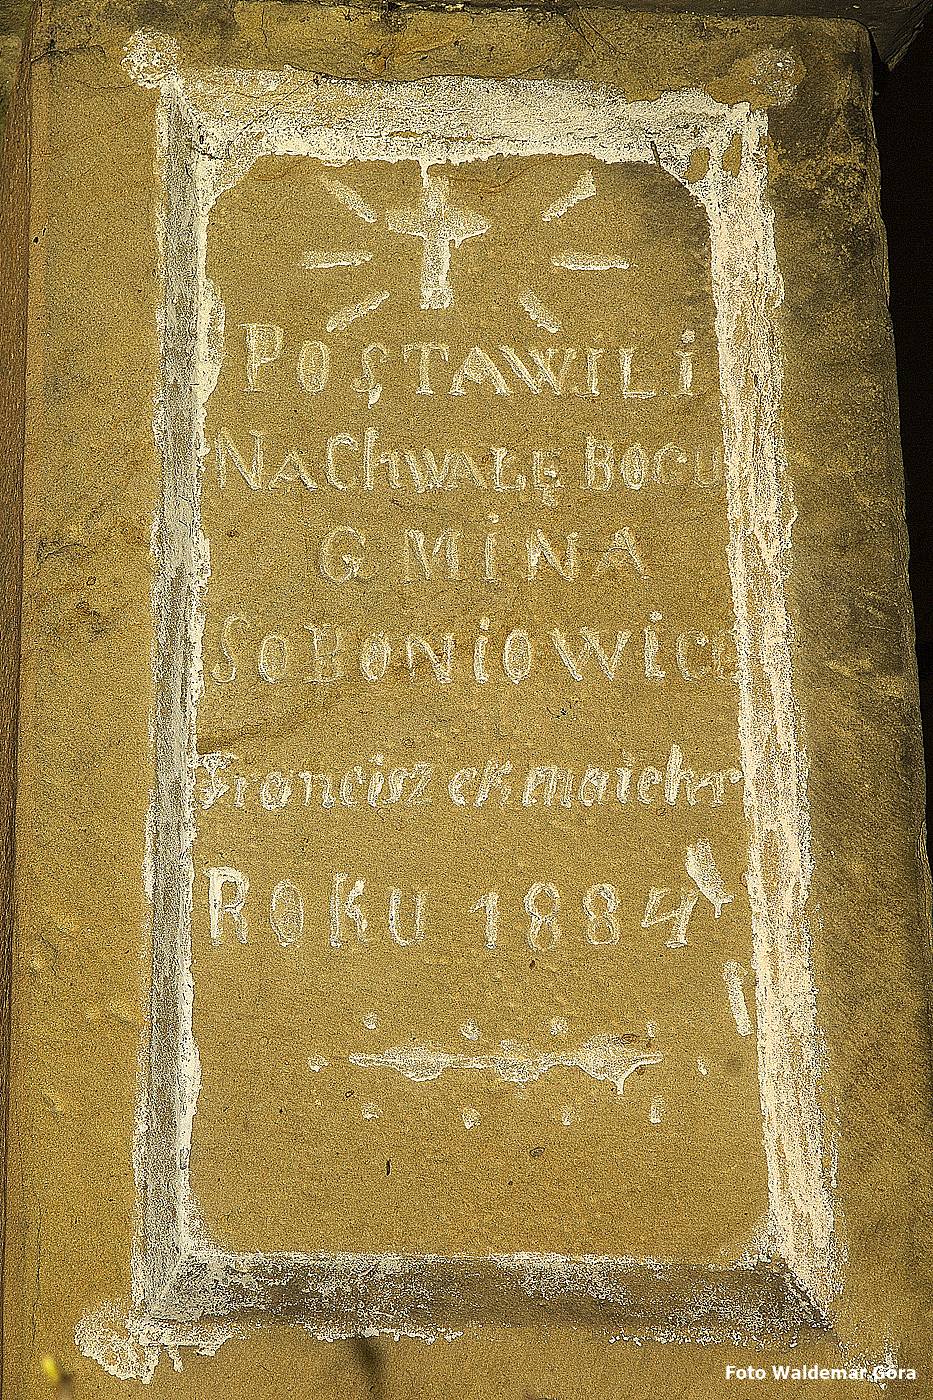 POSTAWILi
NA ChWAŁĘ BOGU
GMiNA
SOBONiOWiCE
Francisz ek
ROKU 1884
Foto Waldemar Góra